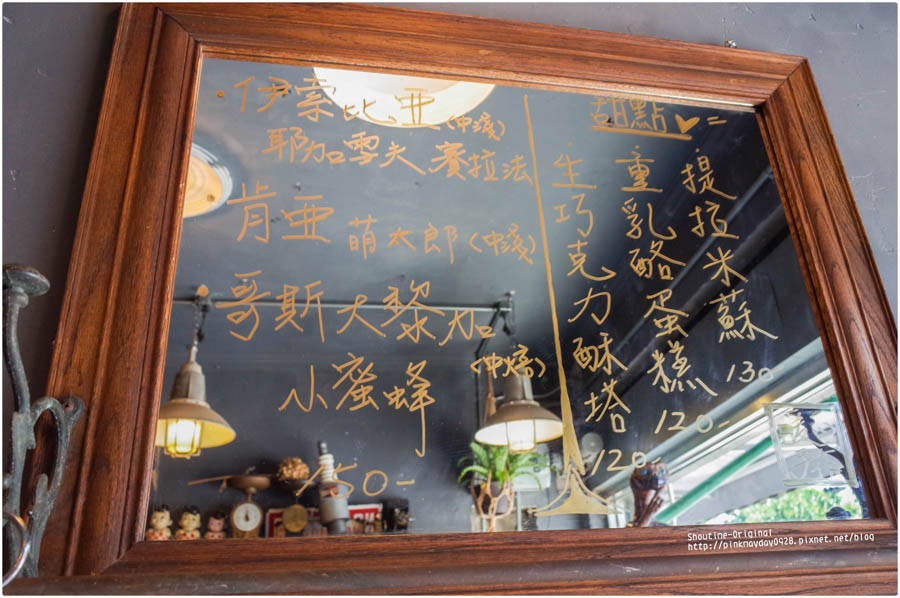 伊索比亞(中淺)
耶加雪夫 賽拉法
肯亞 萌太郎(中淺)
哥斯大黎加
小蜜蜂 (中焙)
150-
甜點
提拉米蘇 130
重乳酪蛋糕 120-
生巧克力酥塔 120-
Shoutine-Original
http://pinknayday0928.pixnet.net/blog